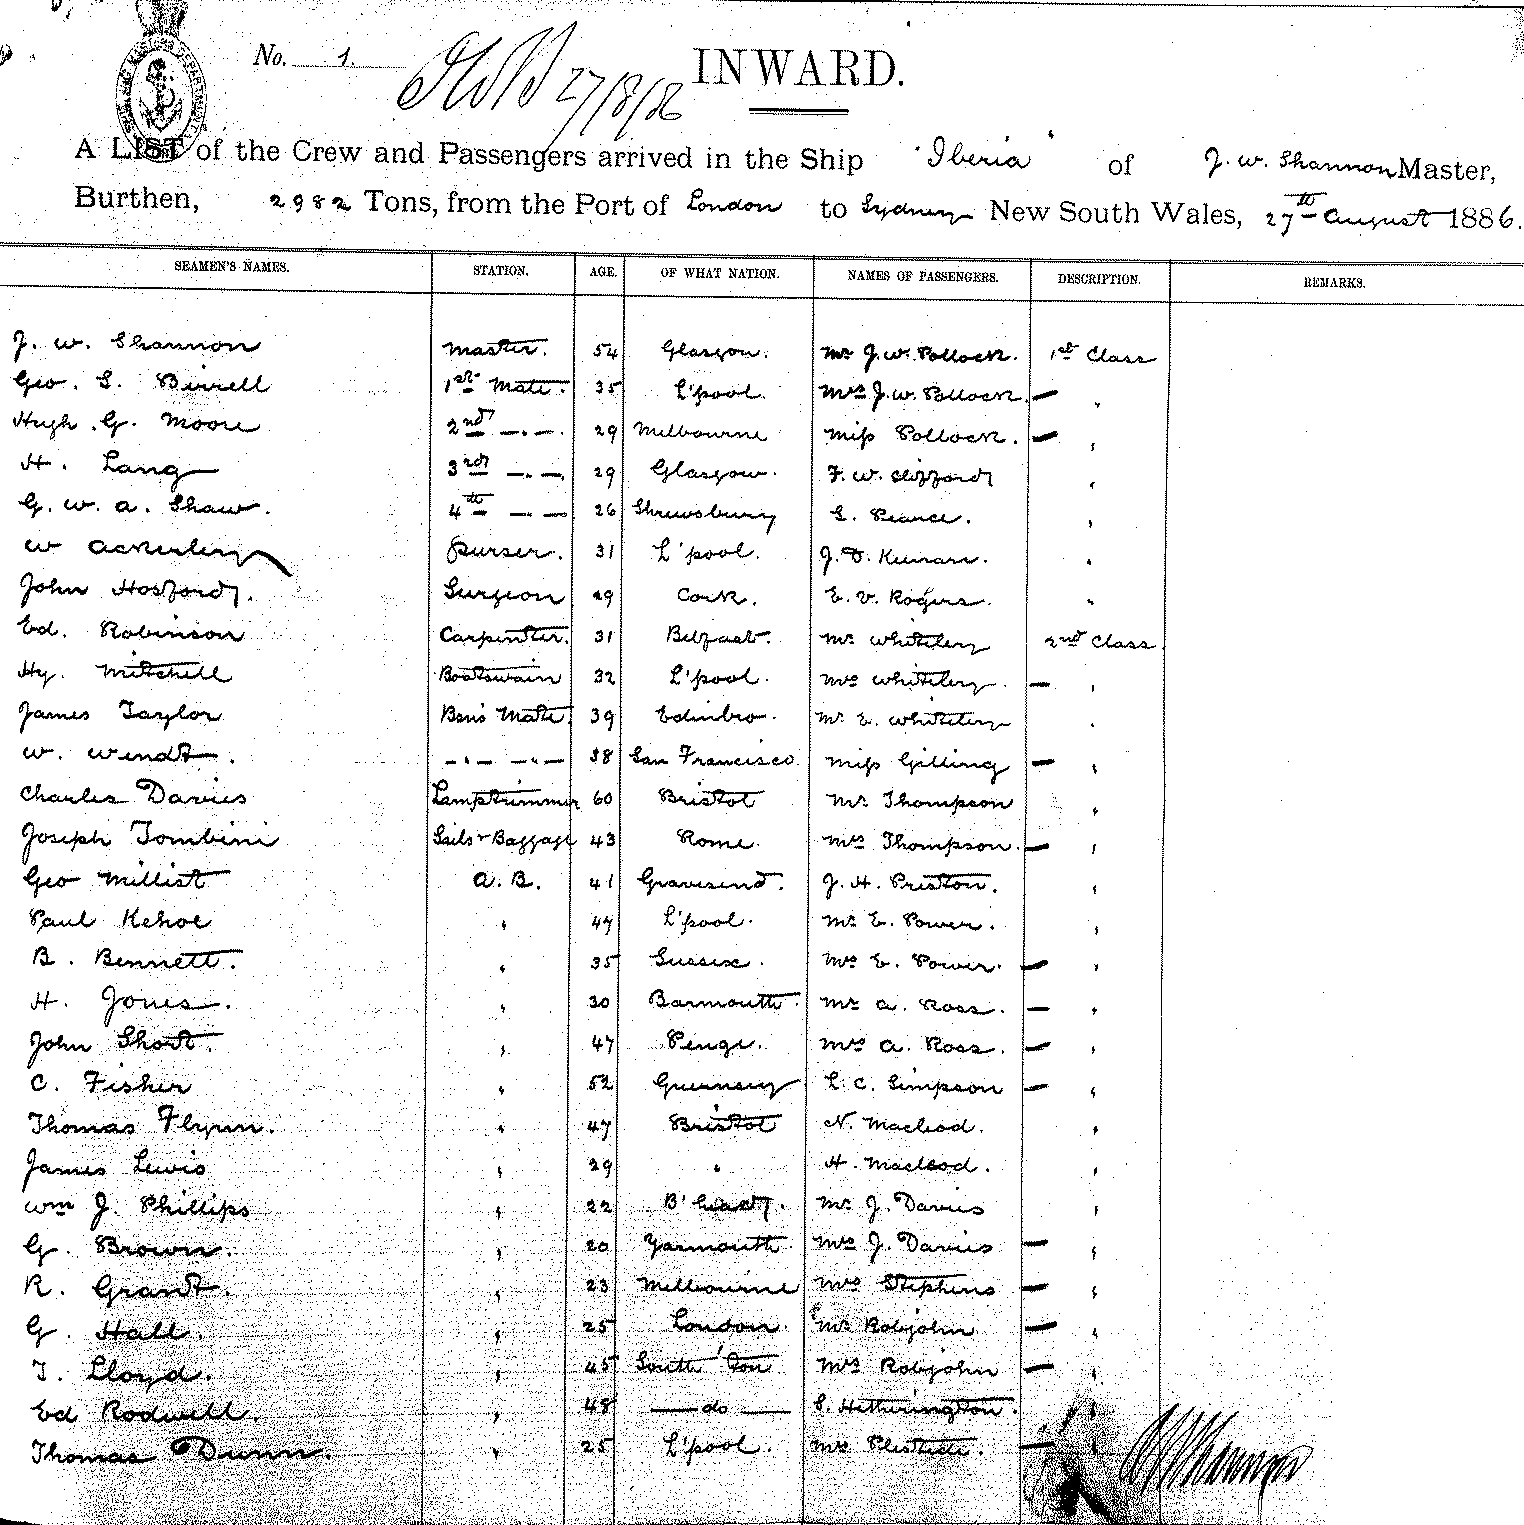 No. 1.
27/8/86
INWARD.
A LIST of the Crew and Passengers arrived in the Ship "Iberia" of J. W. Shannon Master,
Burthen, 2982 Tons, from the Port of London to Sydney New South Wales, 27th August 1886.
SEAMEN'S NAMES. STATION. AGE. OF WHAT NATION. NAMES OF PASSENGERS. DESCRIPTION. REMARKS.
J. W. Shannon Master. 54 Glasgow. Mr J. W. Pollock. 1st Class
Geo. S. Birrell 1st Mate. 35 L'pool. Mrs J. W. Pollock. — "
Hugh. G. Moore 2nd —.—. 29 Melbourne Miss Pollock. — "
H. Lang 3rd —.—, 29 Glasgow. F. W. Clifford "
G. W. A. Shaw. 4th — — 26 Shrewsbury S. Pearce. "
W Ackerley Purser. 31 L'pool. J. D. Keenan. "
John Hosford. Surgeon 29 Cork. E. V. Rogers. "
Ed. Robinson Carpenter. 31 Belfast. Mr Whiteley 2nd Class
Hy. Mitchell Boatswain 32 L'pool. Mrs Whiteley. — "
James Taylor Bsn's Mate 39 Edinbro. Mr E. Whiteley "
W. Wendt. —.— —.— 38 San Francisco Miss Gilling — "
Charles Davies Lamptrimmer 60 Bristol Mr Thompson "
Joseph Tombini Sails & Baggage 43 Rome. Mrs Thompson. — "
Geo Millist A. B. 41 Gravesend. J. H. Preston. "
Paul Kehoe " 47 L'pool. Mr E. Power. "
B. Bennett. " 35 Sussex. Mrs E. Power. — "
H. Jones. " 30 Barmouth. Mr A. Ross. — "
John Short. " 47 Penge. Mrs A. Ross. — "
C. Fisher " 52 Guernsey L. C. Simpson — "
Thomas Flynn. " 47 Bristol N. Macleod. "
James Lewis " 29 " H. Macleod. "
Wm J. Phillips " 22 B'head. Mr J. Davies "
G. Brown. " 20 Yarmouth. Mrs J. Davies — "
R. Grant. " 23 Melbourne Mrs Stephens — "
G. Hall. " 25 London. Mr Robjohn — "
T. Lloyd. " 45 South'ton Mrs Robjohn — "
Ed Rodwell. " 48 — do — S. Hetherington. "
Thomas Dunn. " 25 L'pool. Mrs — "